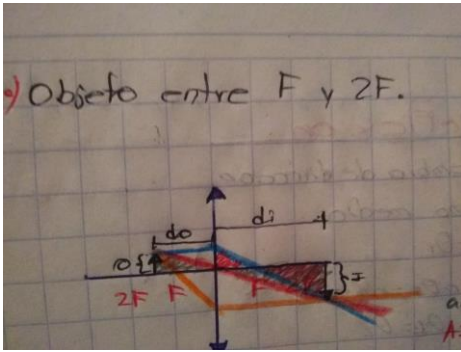 Objeto entre F y 2F.
do
di
O{
}I
2F F F
a
A